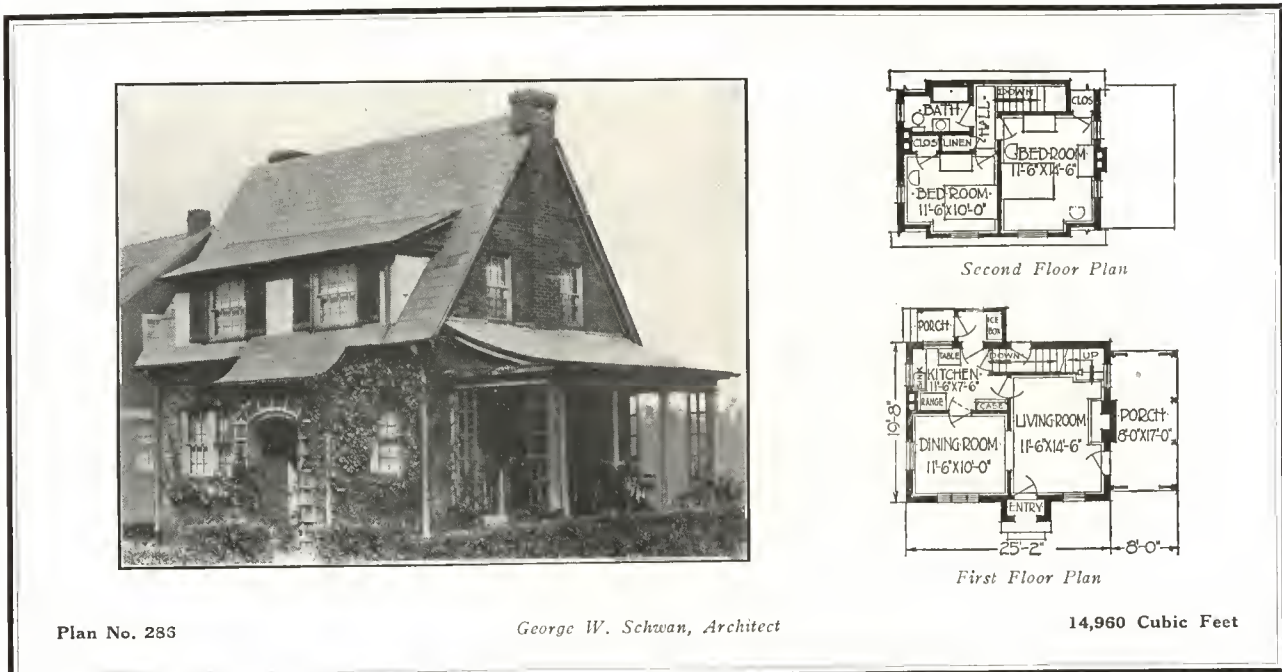 DOWN
CLOS
BATH
HALL
CLOS
LINEN
BED-ROOM
11'-6"X14'-6"
BED-ROOM
11'-6"X10'-0"
Second Floor Plan
PORCH
ICE
BOX
TABLE
DOWN
UP
KITCHEN
11'-6"X7'-6"
RANGE
CASE
LIVING ROOM
11'-6"X14'-6"
PORCH
8'-0"X17'-0"
19'-8"
DINING ROOM
11'-6"X10'-0"
ENTRY
25'-2"
8'-0"
First Floor Plan
Plan No. 286
George W. Schwan, Architect
14,960 Cubic Feet